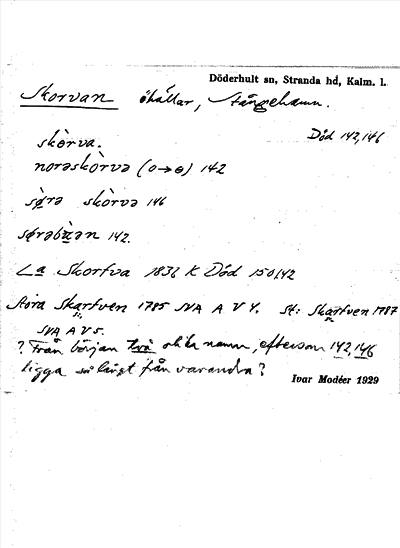 Döderhult sn, Stranda hd, Kalm. l.
Skorvan öhällar, Stångehamn.
Död 142,146
skòrva.
norəskòrvə (o→ɵ) 142
sø̀rə skòrvə 146
142.
La Skorfva 1836 K Död 150,142
Stora Skarfven 1785 SVA A V 4. st: Skarfven 1787
SVA A V 5.
? Från början två olika namn, eftersom 142,146
ligga så långt från varandra?
Ivar Modéer 1929